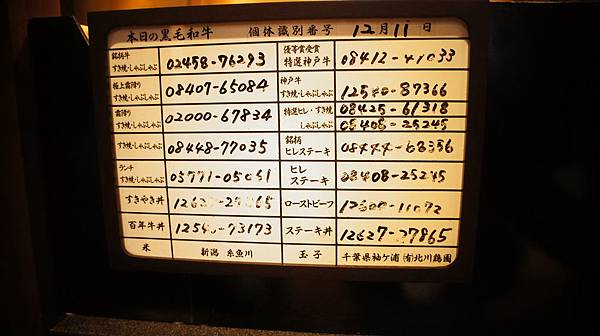 本日の黒毛和牛 個体識別番号 12月11日
銘柄牛
すき焼・しゃぶしゃぶ
02458-76293
優等賞受賞
特選神戸牛
08412-41033
極上霜降り
すき焼・しゃぶしゃぶ
08407-65084
神戸牛
すき焼・しゃぶしゃぶ
霜降り
すき焼・しゃぶしゃぶ
02000-67834
特選ヒレ・すき焼
しゃぶしゃぶ
08425-61318
08408-25245
すき焼・しゃぶしゃぶ
08448-77035
銘柄
ヒレステーキ
ランチ
すき焼・しゃぶしゃぶ
05771-05061
ヒレ
ステーキ
08408-25245
すきやき丼
ローストビーフ
百年牛丼
ステーキ丼
12627-27865
米
新潟 糸魚川
玉子
千葉県袖ケ浦 (有)北川鶏園